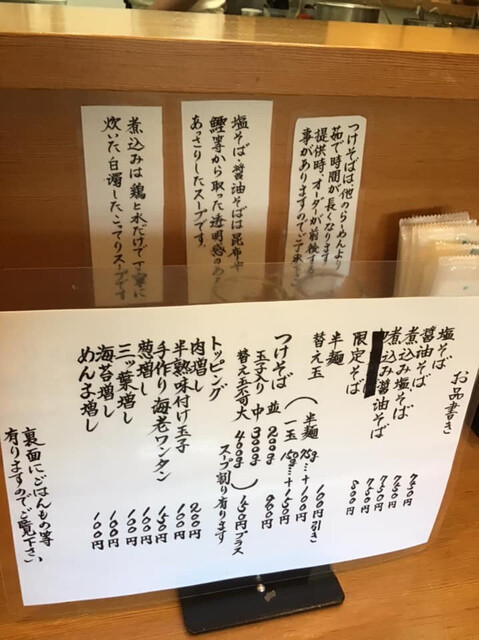 つけそばは他のらーめんより
茹で時間が長くなります
提供時、オーダーが前後する
事がありますのでご了承下さい
塩そば・醤油そばは昆布や
鰹等から取った透明感のある
あっさりしたスープです。
煮込みは鶏と水だけで丁寧に
炊いた白濁したこってりスープです
お品書き
塩そば 750円
醤油そば 750円
煮込み塩そば 750円
煮込み醤油そば 750円
限定そば 800円
半麺 100円引き
替え玉 (半麺 75g…+100円
一玉 150g…+150円
つけそば 並 200g
玉子入り 中 300g 900円
替え玉不可 大 400g)150円プラス
スープ割り有ります
トッピング
肉増し 200円
半熟味付け玉子 100円
手作り海老ワンタン 150円
葱増し 100円
三ッ葉増し 100円
海苔増し 100円
めんま増し 100円
裏面にごはんもの等、
有りますのでご覧下さい